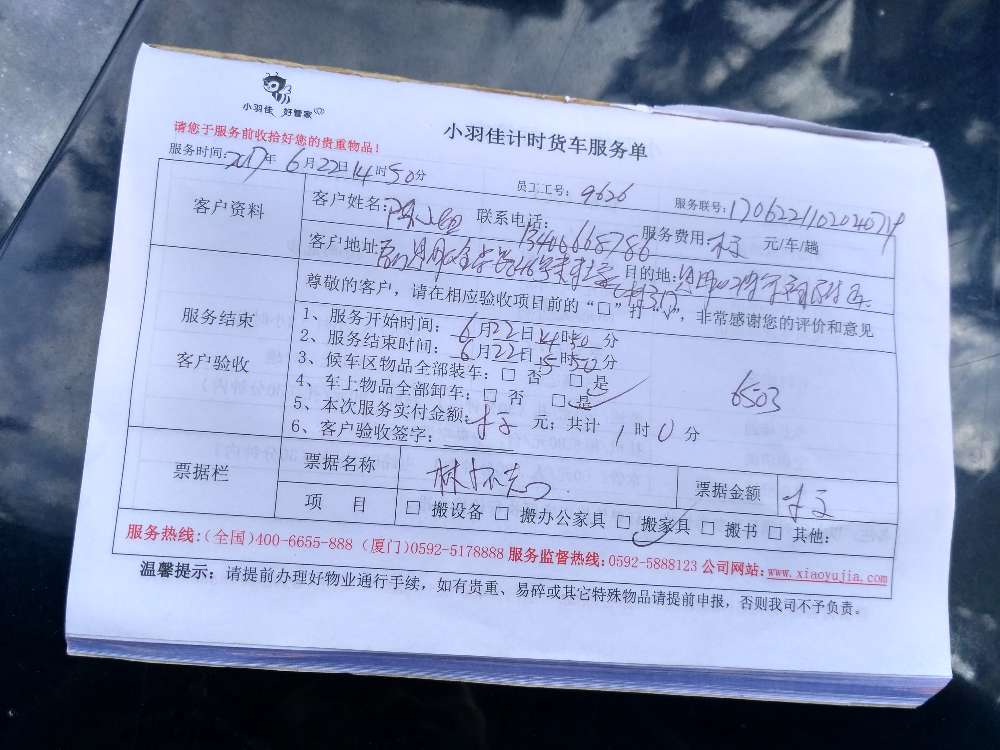 小羽佳 好管家
小羽佳计时货车服务单
请您于服务前收拾好您的贵重物品!
服务时间:2017年6月22日14时50分 员工工号: 9626 服务联号:
客户资料 客户姓名: 联系电话: 13406668786 服务费用: 元/车/趟
客户地址 目的地:
尊敬的客户，请在相应验收项目前的“□”打“√”，非常感谢您的评价和意见
服务结束
客户验收
1、服务开始时间: 6月22日14时50分
2、服务结束时间: 6月22日15时50分
3、候车区物品全部装车: □ 否 □ 是
4、车上物品全部卸车: □ 否 □ 是
6503
5、本次服务实付金额: 元; 共计 1 时 0 分
6、客户验收签字:
票据栏 票据名称 票据金额
项 目 □ 搬设备 □ 搬办公家具 □ 搬家具 □ 搬书 □ 其他:
服务热线:(全国)400-6655-888 (厦门)0592-5178888 服务监督热线:0592-5888123 公司网站:www.xiaoyujia.com
温馨提示: 请提前办理好物业通行手续，如有贵重、易碎或其它特殊物品请提前申报，否则我司不予负责。